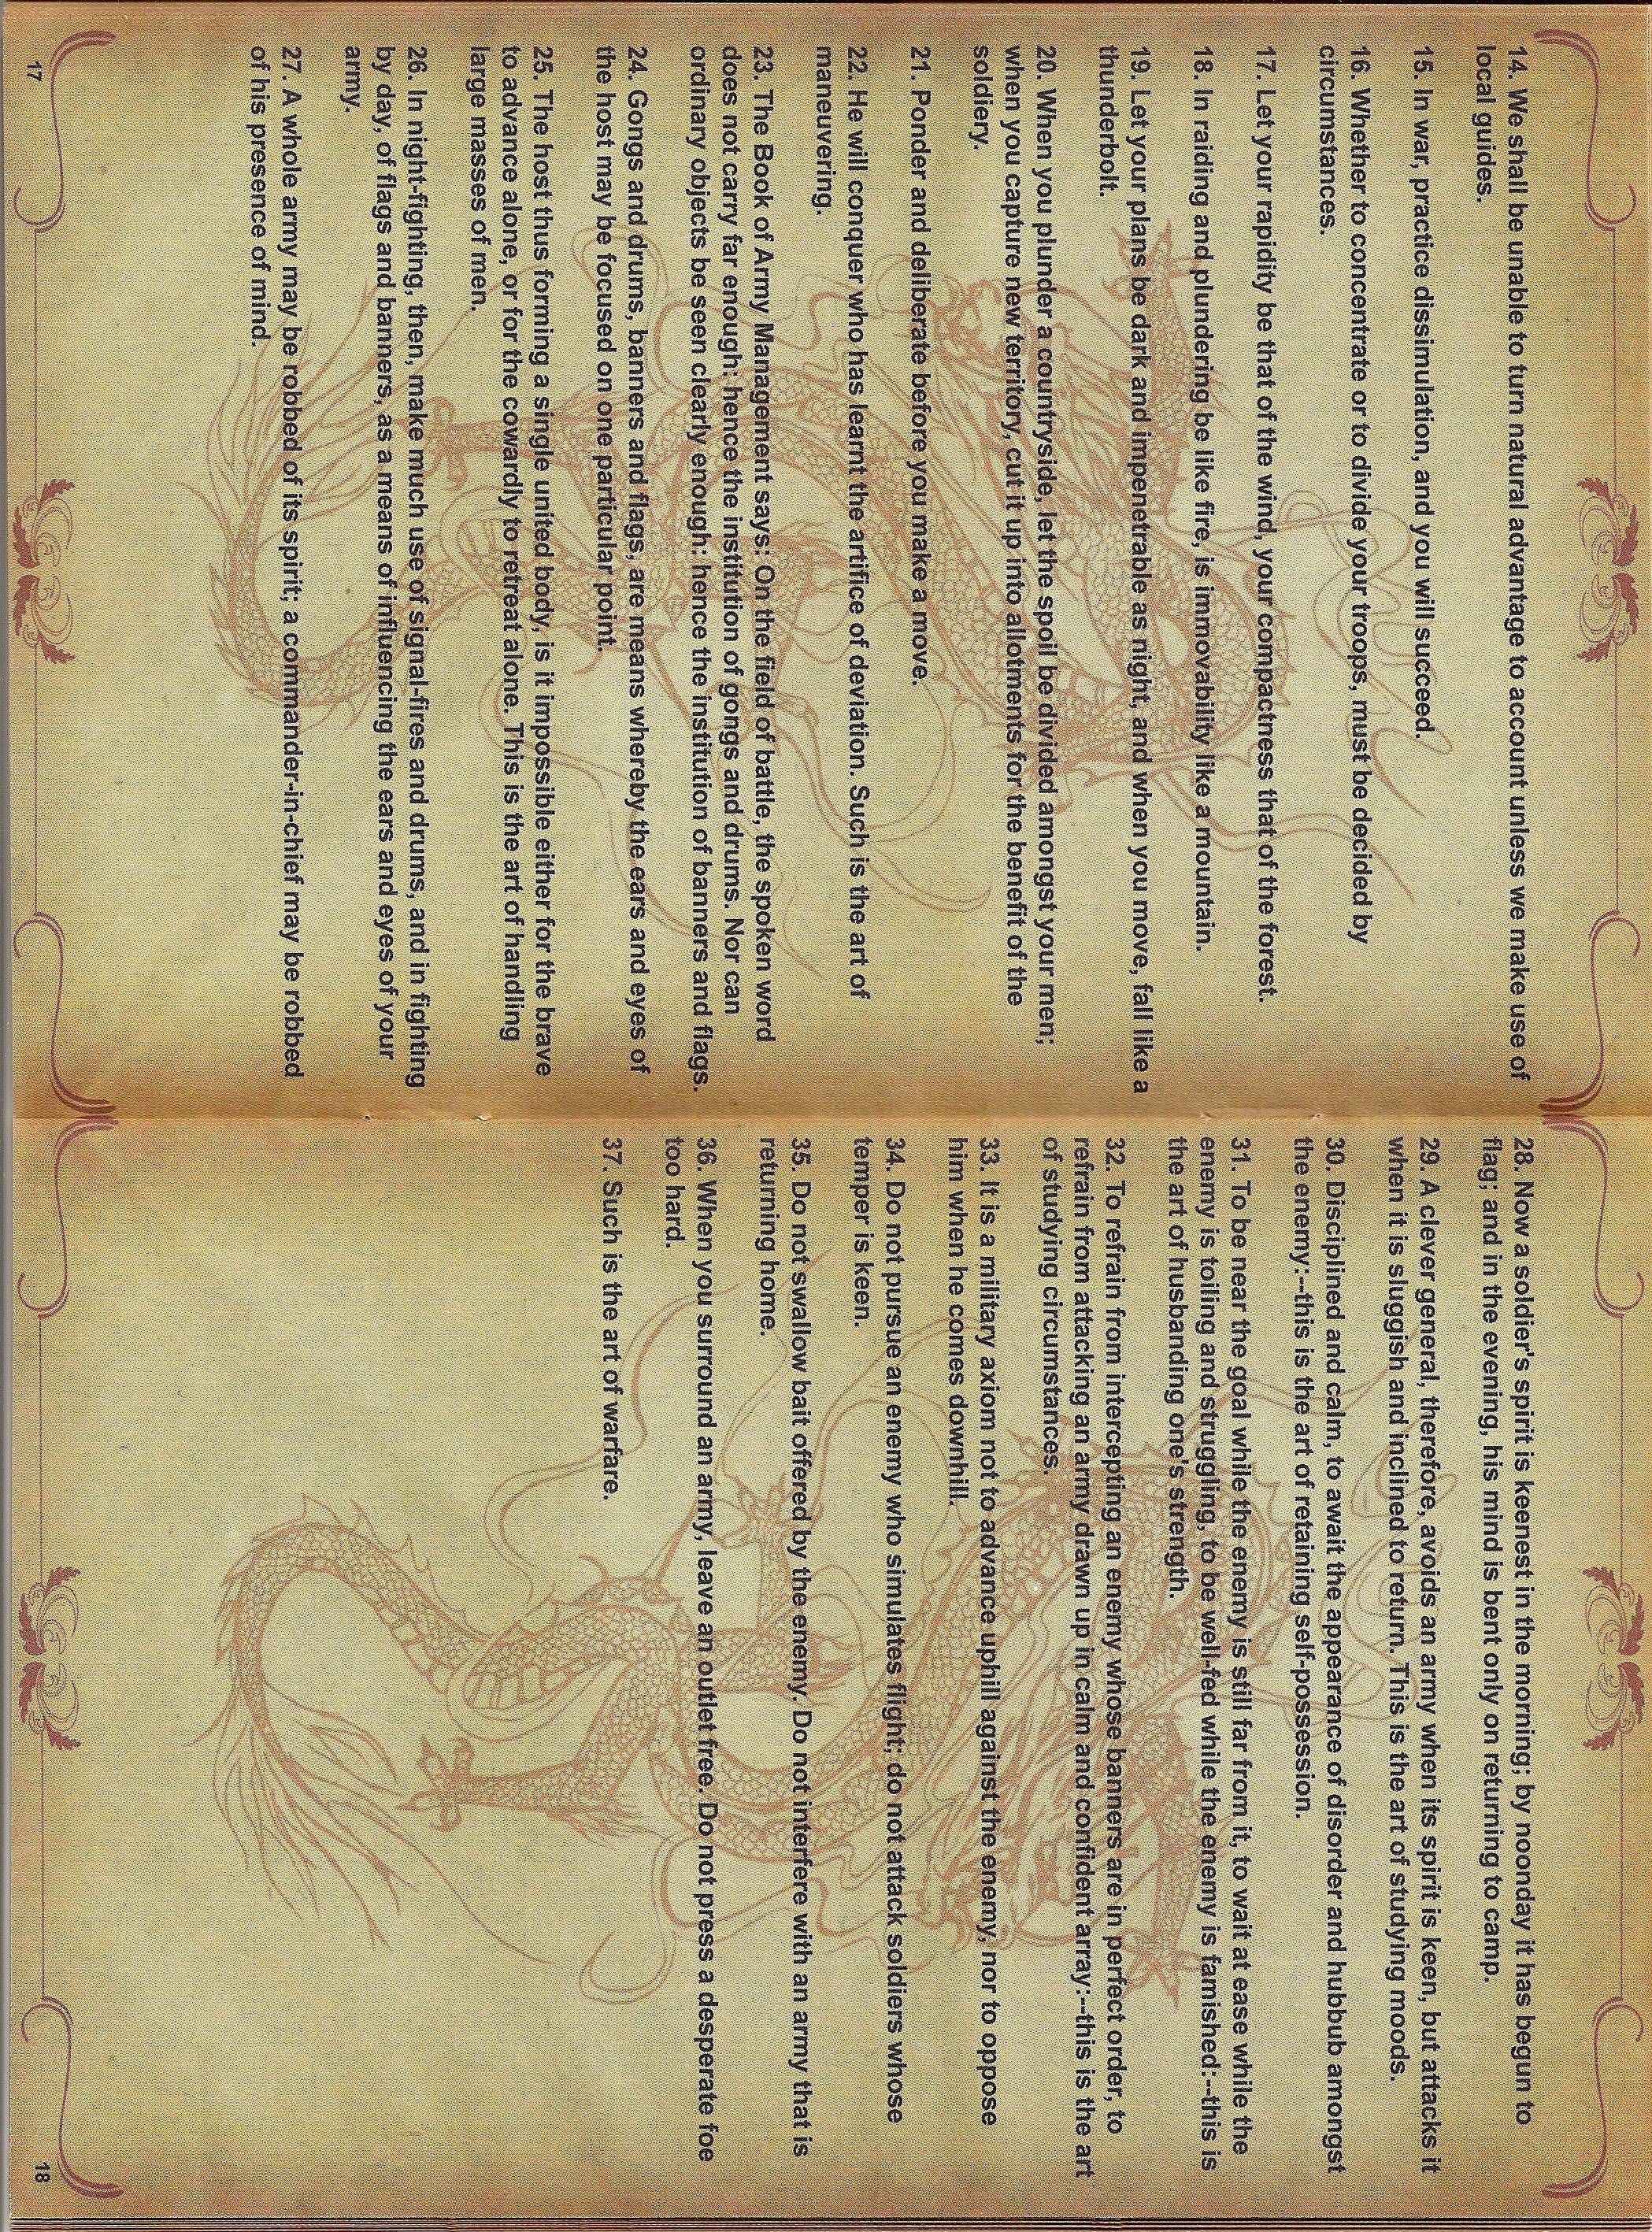 14. We shall be unable to turn natural advantage to account unless we make use of
local guides.
15. In war, practice dissimulation, and you will succeed.
16. Whether to concentrate or to divide your troops, must be decided by
circumstances.
17. Let your rapidity be that of the wind, your compactness that of the forest.
18. In raiding and plundering be like fire, is immovability like a mountain.
19. Let your plans be dark and impenetrable as night, and when you move, fall like a
thunderbolt.
20. When you plunder a countryside, let the spoil be divided amongst your men;
when you capture new territory, cut it up into allotments for the benefit of the
soldiery.
21. Ponder and deliberate before you make a move.
22. He will conquer who has learnt the artifice of deviation. Such is the art of
maneuvering.
23. The Book of Army Management says: On the field of battle, the spoken word
does not carry far enough: hence the institution of gongs and drums. Nor can
ordinary objects be seen clearly enough: hence the institution of banners and flags.
24. Gongs and drums, banners and flags, are means whereby the ears and eyes of
the host may be focused on one particular point.
25. The host thus forming a single united body, is it impossible either for the brave
to advance alone, or for the cowardly to retreat alone. This is the art of handling
large masses of men.
26. In night-fighting, then, make much use of signal-fires and drums, and in fighting
by day, of flags and banners, as a means of influencing the ears and eyes of your
army.
27. A whole army may be robbed of its spirit; a commander-in-chief may be robbed
of his presence of mind.
17
28. Now a soldier's spirit is keenest in the morning; by noonday it has begun to
flag; and in the evening, his mind is bent only on returning to camp.
29. A clever general, therefore, avoids an army when its spirit is keen, but attacks it
when it is sluggish and inclined to return. This is the art of studying moods.
30. Disciplined and calm, to await the appearance of disorder and hubbub amongst
the enemy:--this is the art of retaining self-possession.
31. To be near the goal while the enemy is still far from it, to wait at ease while the
enemy is toiling and struggling, to be well-fed while the enemy is famished:--this is
the art of husbanding one's strength.
32. To refrain from intercepting an enemy whose banners are in perfect order, to
refrain from attacking an army drawn up in calm and confident array:--this is the art
of studying circumstances.
33. It is a military axiom not to advance uphill against the enemy, nor to oppose
him when he comes downhill.
34. Do not pursue an enemy who simulates flight; do not attack soldiers whose
temper is keen.
35. Do not swallow bait offered by the enemy. Do not interfere with an army that is
returning home.
36. When you surround an army, leave an outlet free. Do not press a desperate foe
too hard.
37. Such is the art of warfare.
18